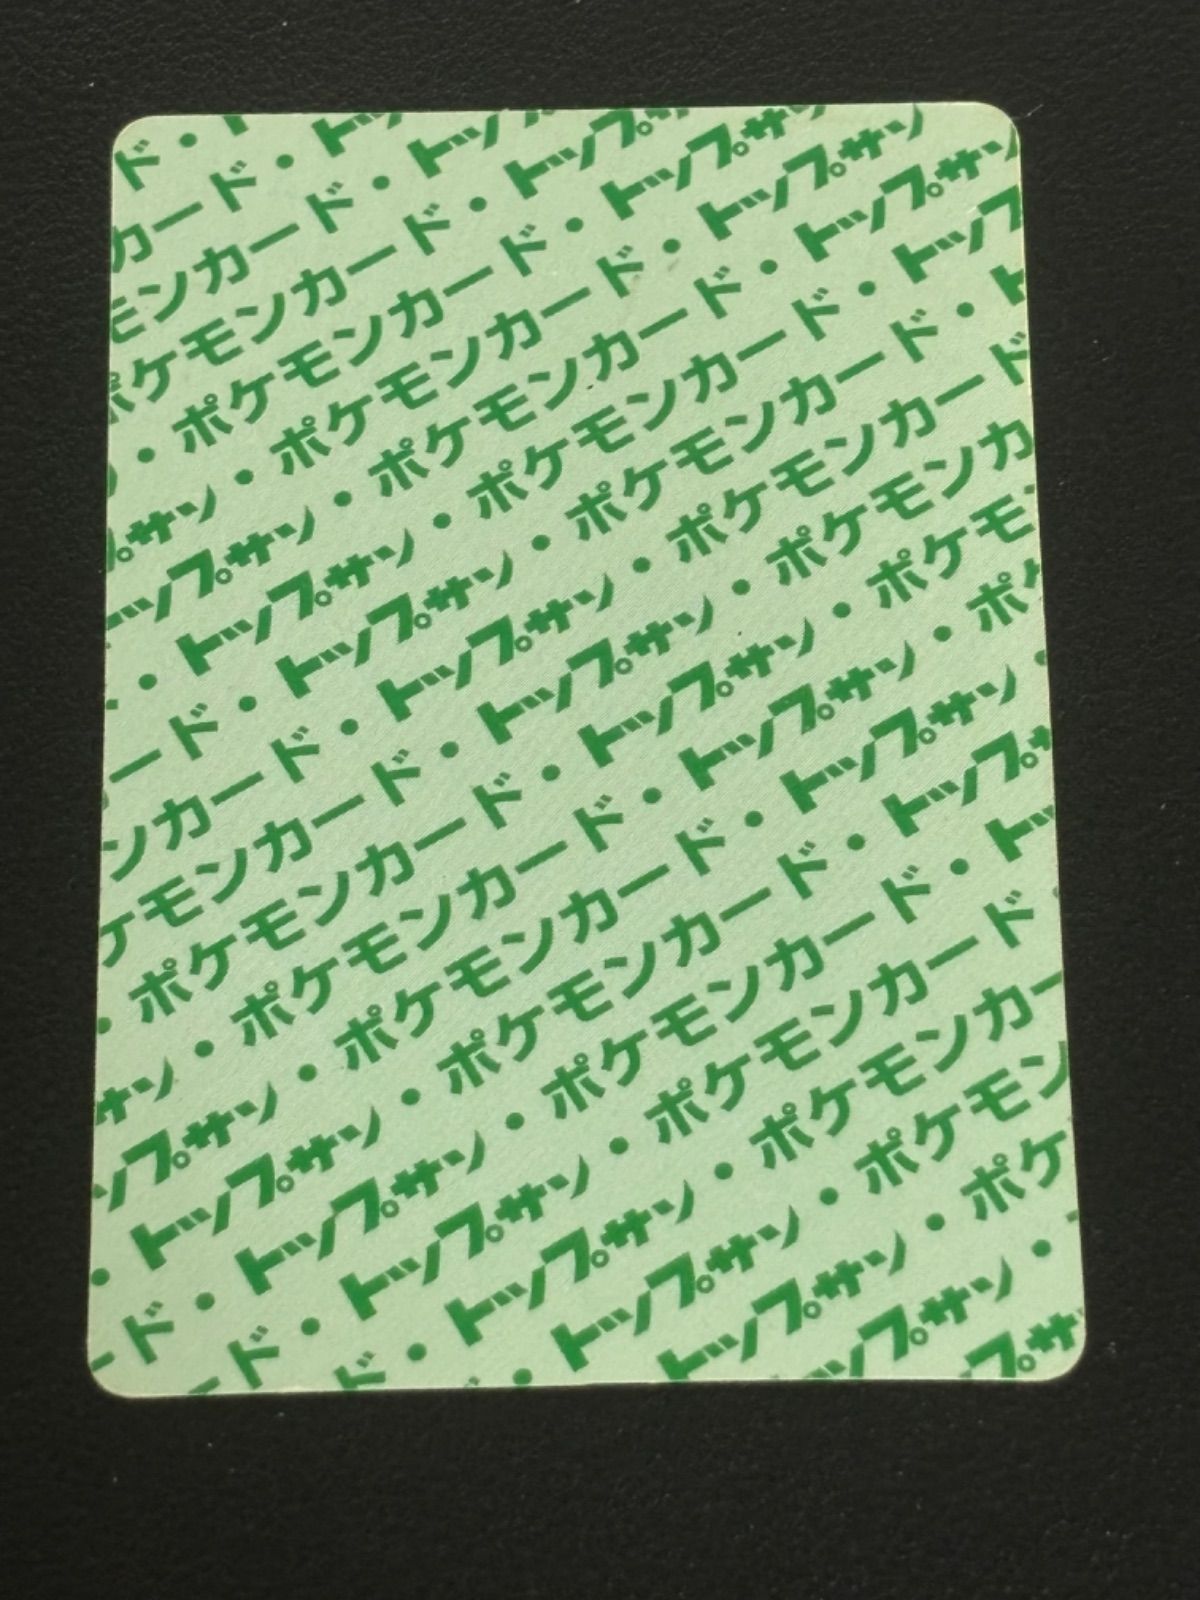 ド・ト
カード・トッ
モンカード・トップ
ポケモンカード・トップサ
ン・ポケモンカード・トップサン
プサン・ポケモンカード・トップサン
トップサン・ポケモンカード・トップサン
・トップサン・ポケモンカード・トップ
ード・トップサン・ポケモンカード・ト
ンカード・トップサン・ポケモンカード
ケモンカード・トップサン・ポケモンカ
・ポケモンカード・トップサン・ポケモ
サン・ポケモンカード・トップサン・ポ
ップサン・ポケモンカード・トップサン・
・トップサン・ポケモンカード・トップサ
ド・トップサン・ポケモンカード・トッ
ード・トップサン・ポケモンカード
ド・トップサン・ポケモンカー
・トップサン・ポケモン
トップサン・ポケ
ップサン・
プサ